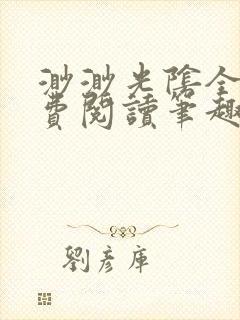 渺渺光陰全
費閱讀筆趣
劉彥庫